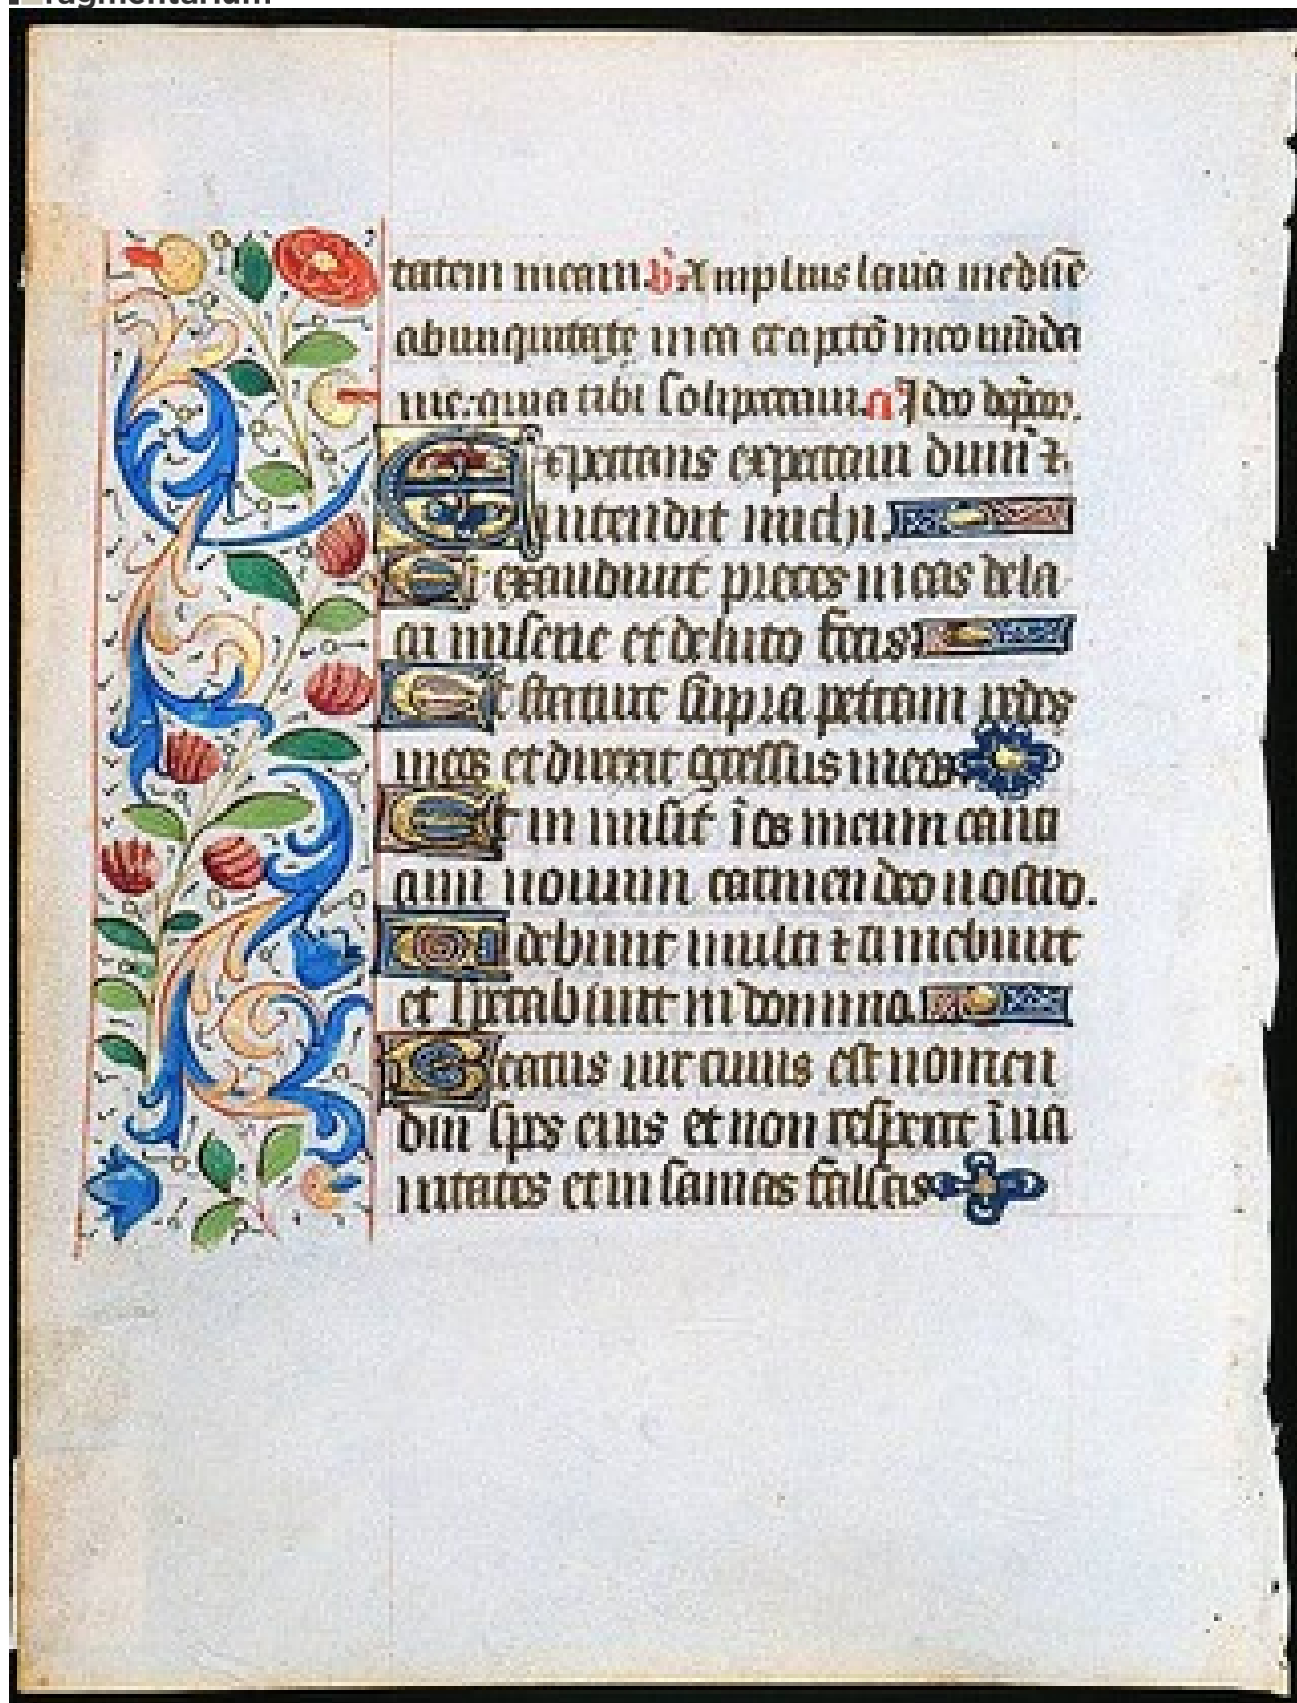 fragmentarium
tatem meam. v. Amplius laua me dñe
ab iniquitate mea et a pctō meo mūda
me. quia tibi soli peccaui. a
Expectans expectaui dum̄ ⁊
intendit michi.
Et exaudiuit preces meas de la
cu miserie et de luto fecis.
Et statuit supra petram pedes
meos et direxit gressus meos
Et in misit ī os meum cantic
aum nouum carmen deo nostro.
Uidebunt multi ⁊ timebunt
et sperabunt in domino.
Beatus uir cuius est nomen
dnī spes eius et non respexit ī ua
nitates et in sanias falsas